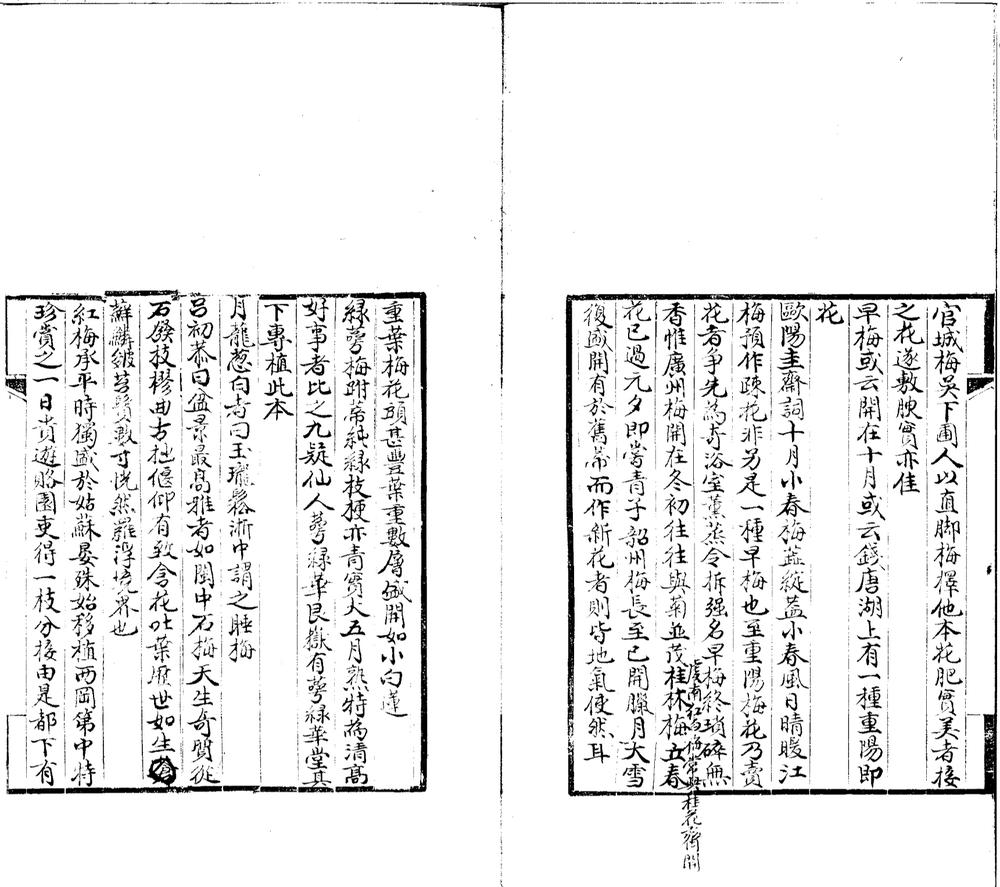 官城梅吳下圃人以直脚梅擇他本花肥實美者接
之花遂敷腴實亦佳
早梅或云開在十月或云錢唐湖上有一種重陽即
花
歐陽圭齋詞十月小春梅蕊綻蓋小春風日晴暖江
梅預作疎花非另是一種早梅也至重陽梅花乃賣
花者爭先為奇浴室薰蒸令拆强名早梅終瑣碎無
香惟廣州梅開在冬初往往與菊並茂桂林梅立春
南紅白梅常與桂花齊開
花已過元夕即嘗青子韶州梅長至已開臘月大雪
復盛開有於舊蒂而作新花者則皆地氣使然耳
重葉梅花頭甚豐葉重數層盛開如小白蓮
緑萼梅跗蒂純緑枝梗亦青實大五月熟特為清高
好事者比之九疑仙人萼緑華艮嶽有萼緑華堂其
下專植此本
月龍葱向寺曰玉瓏鬆浙中謂之睡梅
呂初泰曰盆景最高雅者如閩中石梅天生奇質從
石發枝樛曲古拙偃仰有致含花吐葉歷世如生
蘚鱗皴苔鬚數寸恍然羅浮境界也
紅梅承平時獨盛於姑蘇晏殊始移植西岡第中特
珍賞之一日貴遊賂園吏得一枝分接由是都下有